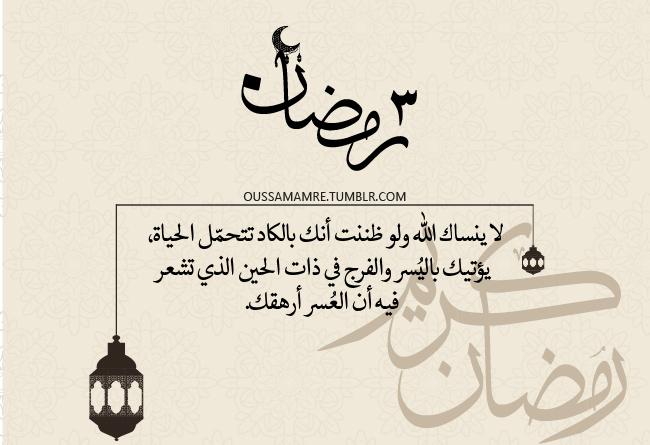 ٣ رمضان
OUSSAMAMRE.TUMBLR.COM
لا ينساك الله ولو ظننت أنك بالكاد تتحمّل الحياة،
يؤتيك باليُسر والفرج في ذات الحين الذي تشعر
فيه أن العُسر أرهقك.
رمضان
كريم